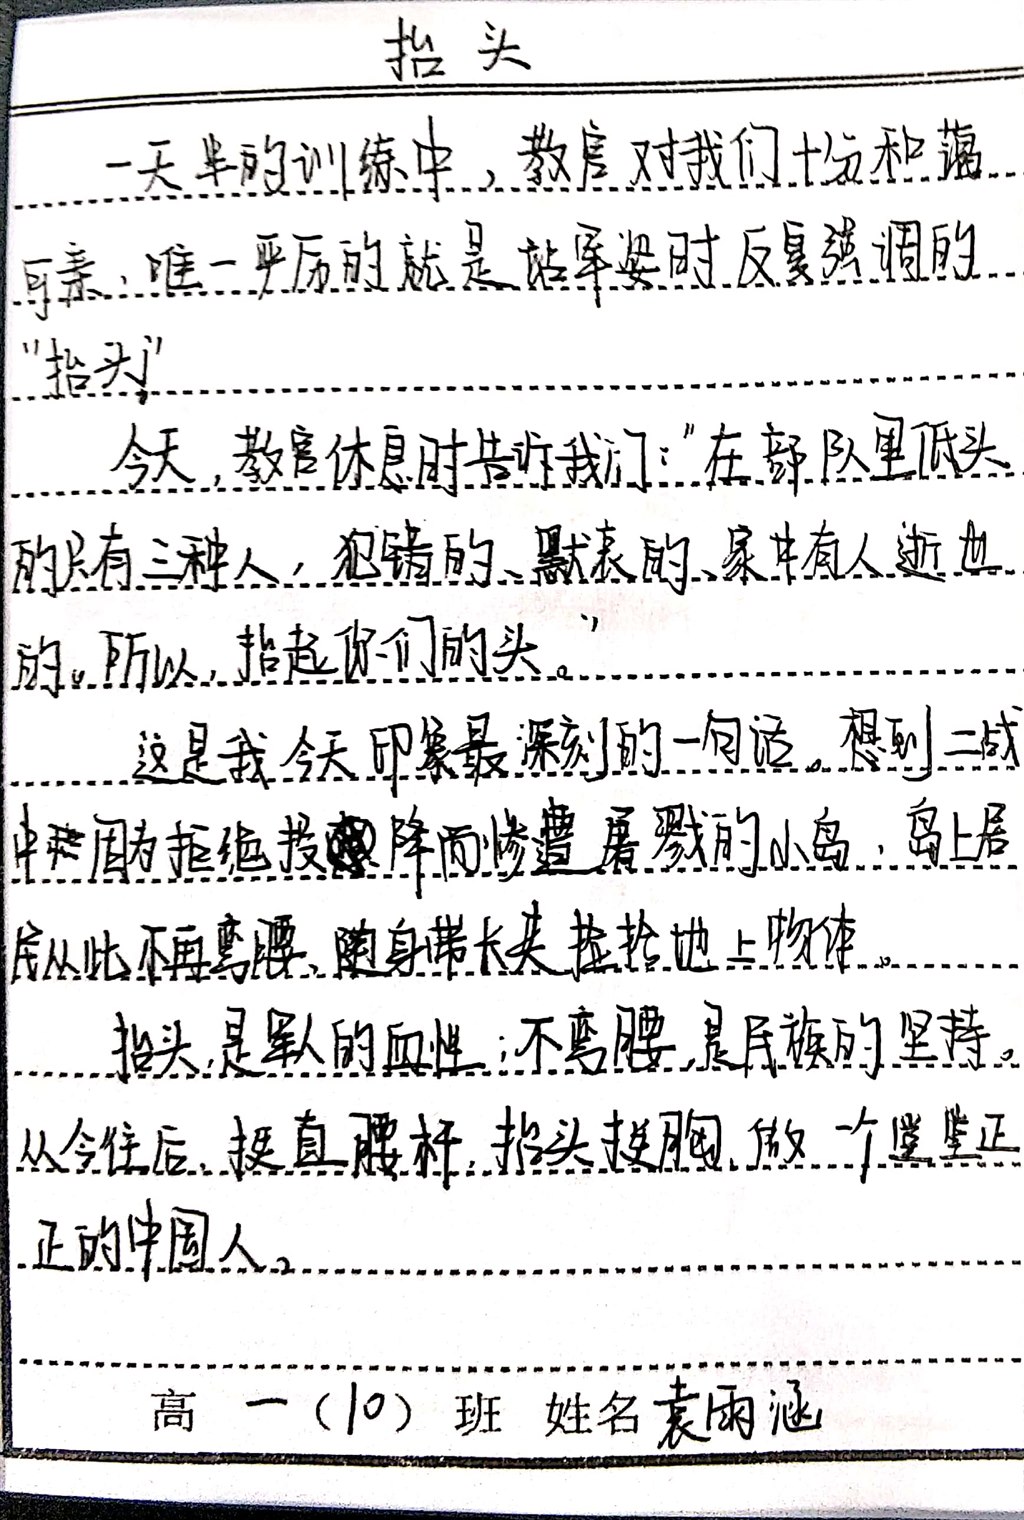 抬头
一天半的训练中，教官对我们十分和蔼
可亲，唯一严厉的就是站军姿时反复强调的
“抬头！”
今天，教官休息时告诉我们：“在部队里低头
的只有三种人，犯错的、默哀的、家中有人逝世
的。所以，抬起你们的头。”
这是我今天印象最深刻的一句话。想到二战
中因为拒绝投降而惨遭屠戮的小岛，岛上居
民从此不再弯腰、随身带长夹捡拾地上物体。
抬头，是军人的血性；不弯腰，是民族的坚持。
从今往后，挺直腰杆，抬头挺胸，做一个堂堂正
正的中国人。
高一（10）班 姓名袁雨涵